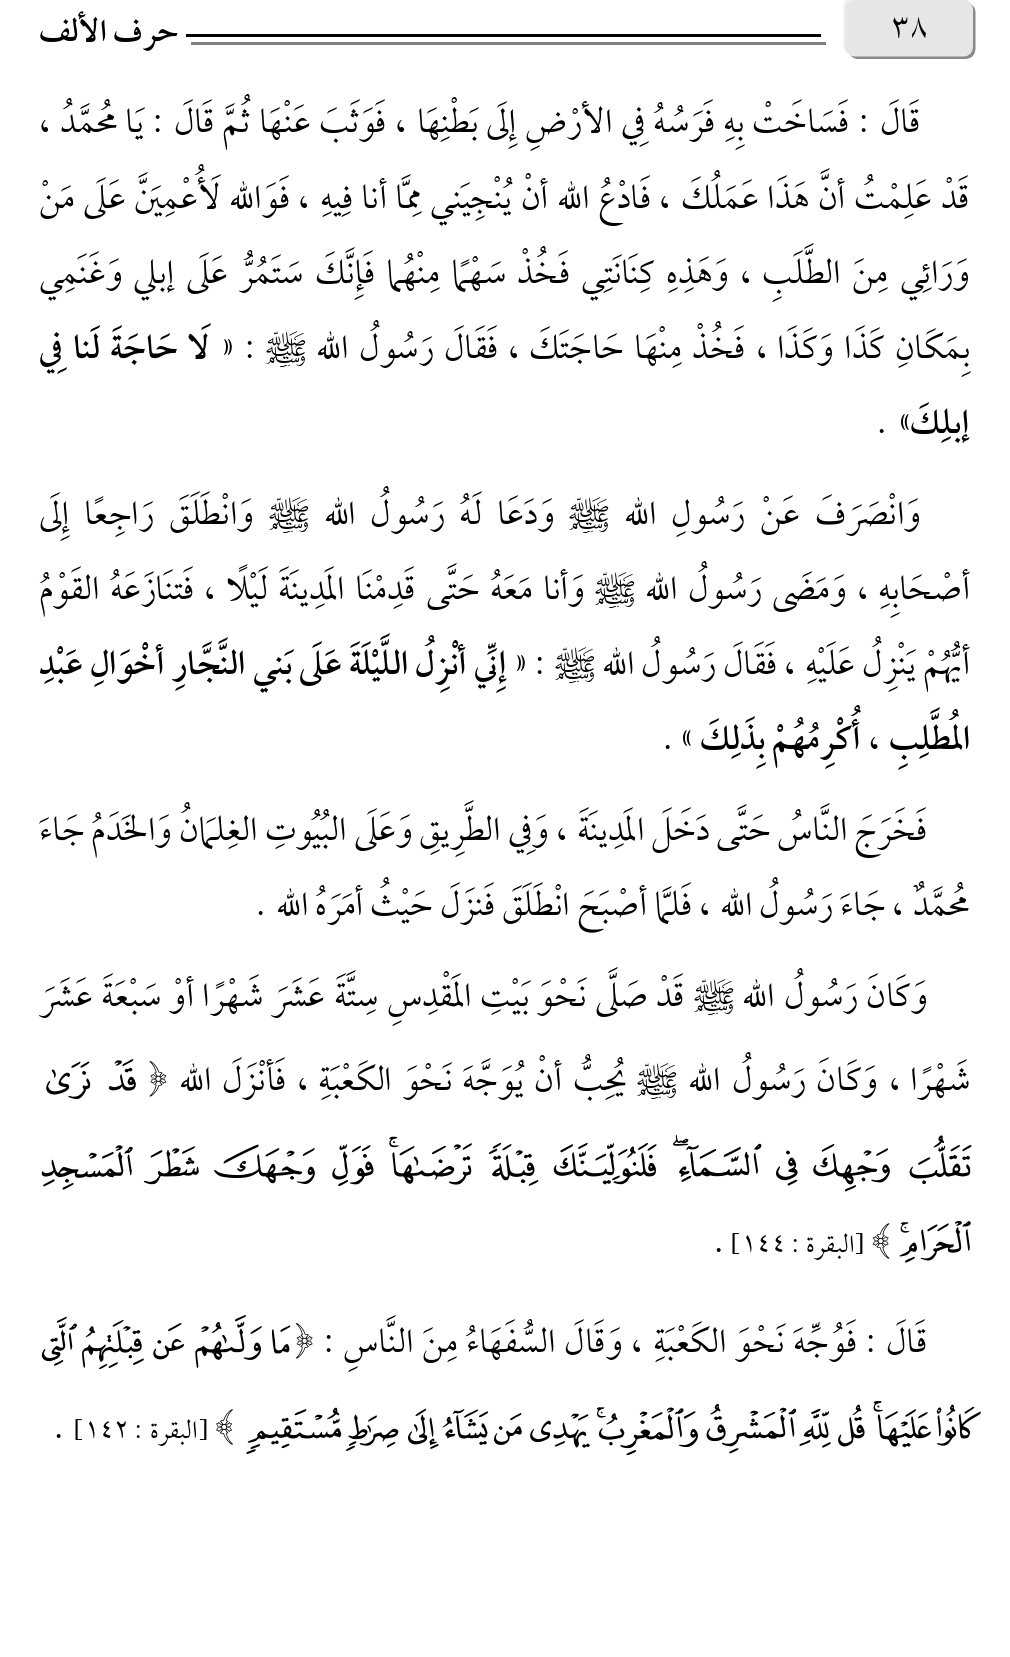 ٣٨
حرف الألف
قَالَ : فَسَاخَتْ بِهِ فَرَسُهُ فِي الأرْضِ إِلَى بَطْنِهَا ، فَوَثَبَ عَنْهَا ثُمَّ قَالَ : يَا مُحَمَّدُ ،
قَدْ عَلِمْتُ أنَّ هَذَا عَمَلُكَ ، فَادْعُ الله أنْ يُنْجِيَني مِمَّا أنا فِيهِ ، فَوَالله لَأُعْمِيَنَّ عَلَى مَنْ
وَرَائِي مِنَ الطَّلَبِ ، وَهَذِهِ كِنَانَتِي فَخُذْ سَهْمًا مِنْهُما فَإِنَّكَ سَتَمُرُّ عَلَى إبلي وَغَنَمِي
بِمَكَانِ كَذَا وَكَذَا ، فَخُذْ مِنْهَا حَاجَتَكَ ، فَقَالَ رَسُولُ الله ﷺ : « لَا حَاجَةَ لَنا فِي
إبلِكَ» .
وَانْصَرَفَ عَنْ رَسُولِ الله ﷺ وَدَعَا لَهُ رَسُولُ الله ﷺ وَانْطَلَقَ رَاجِعًا إِلَى
أصْحَابِهِ ، وَمَضَى رَسُولُ الله ﷺ وَأنا مَعَهُ حَتَّى قَدِمْنَا المَدِينَةَ لَيْلًا ، فَتنَازَعَهُ القَوْمُ
أيُّهُمْ يَنْزِلُ عَلَيْهِ ، فَقَالَ رَسُولُ الله ﷺ : « إنِّي أنْزِلُ اللَّيْلَةَ عَلَى بَني النَّجَّارِ أخْوَالِ عَبْدِ
المُطَّلِبِ ، أُكْرِمُهُمْ بِذَلِكَ » .
فَخَرَجَ النَّاسُ حَتَّى دَخَلَ المَدِينَةَ ، وَفِي الطَّرِيقِ وَعَلَى البُيُوتِ الغِلمَانُ وَالخَدَمُ جَاءَ
مُحَمَّدٌ ، جَاءَ رَسُولُ الله ، فَلمَّا أصْبَحَ انْطَلَقَ فَنزَلَ حَيْثُ أمَرَهُ الله .
وَكَانَ رَسُولُ الله ﷺ قَدْ صَلَّى نَحْوَ بَيْتِ المَقْدِسِ سِتَّةَ عَشَرَ شَهْرًا أوْ سَبْعَةَ عَشَرَ
شَهْرًا ، وَكَانَ رَسُولُ الله ﷺ يُحِبُّ أنْ يُوَجَّهَ نَحْوَ الكَعْبَةِ ، فَأنْزَلَ الله ﴿ قَدْ نَرَىٰ
تَقَلُّبَ وَجْهِكَ فِى ٱلسَّمَآءِ ۖ فَلَنُوَلِّيَنَّكَ قِبْلَةً تَرْضَىٰهَا ۚ فَوَلِّ وَجْهَكَ شَطْرَ ٱلْمَسْجِدِ
ٱلْحَرَامِ ۚ ﴾ [البقرة : ١٤٤] .
قَالَ : فَوُجِّهَ نَحْوَ الكَعْبَةِ ، وَقَالَ السُّفَهَاءُ مِنَ النَّاسِ : ﴿مَا وَلَّىٰهُمْ عَن قِبْلَتِهِمُ ٱلَّتِى
كَانُوا۟ عَلَيْهَا ۚ قُل لِّلَّهِ ٱلْمَشْرِقُ وَٱلْمَغْرِبُ ۚ يَهْدِى مَن يَشَآءُ إِلَىٰ صِرَٰطٍ مُّسْتَقِيمٍ ﴾ [البقرة : ١٤٢] .